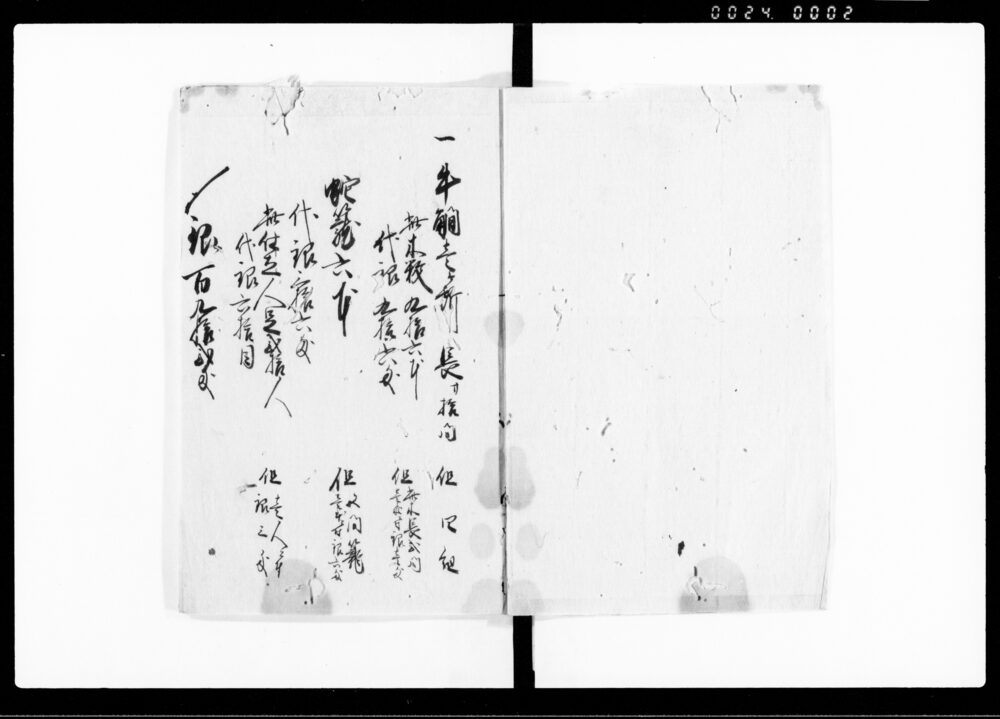 0024. 0002
一牛　壱ヶ所　長サ拾間　但四組
此木数　九拾六本　但此木長弐間
代銀　九拾六匁　壱本ニ付銀壱匁
蛇籠六本　但　間籠
代銀　拾六匁　壱本ニ付銀六匁
此仕立人足弐拾人　但壱人ニ付
代銀六拾目　銀三匁
〆銀百九拾弐匁